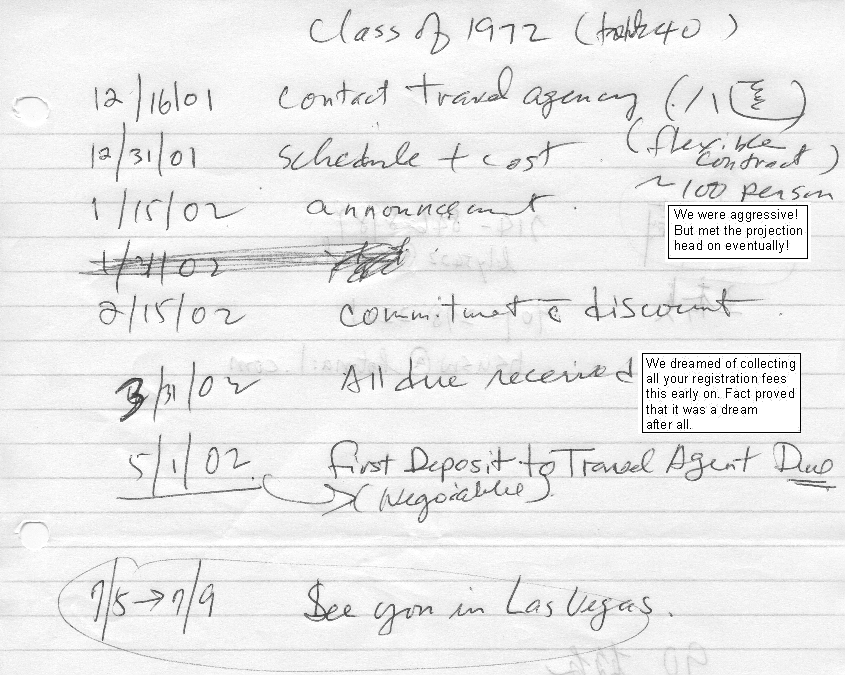 Class of 1972 ( 40 )
12/16/01 contact travel agency
12/31/01 schedule + cost (flexible contract)
~100 person
1/15/02 announcement.
We were aggressive!
But met the projection
head on eventually!
1/31/02
2/15/02 commitment c̄ discount.
3/31/02 All due received
We dreamed of collecting
all your registration fees
this early on. Fact proved
that it was a dream
after all.
5/1/02. First Deposit to Travel Agent Due
(Negotiable)
7/5→7/9 See you in Las Vegas.